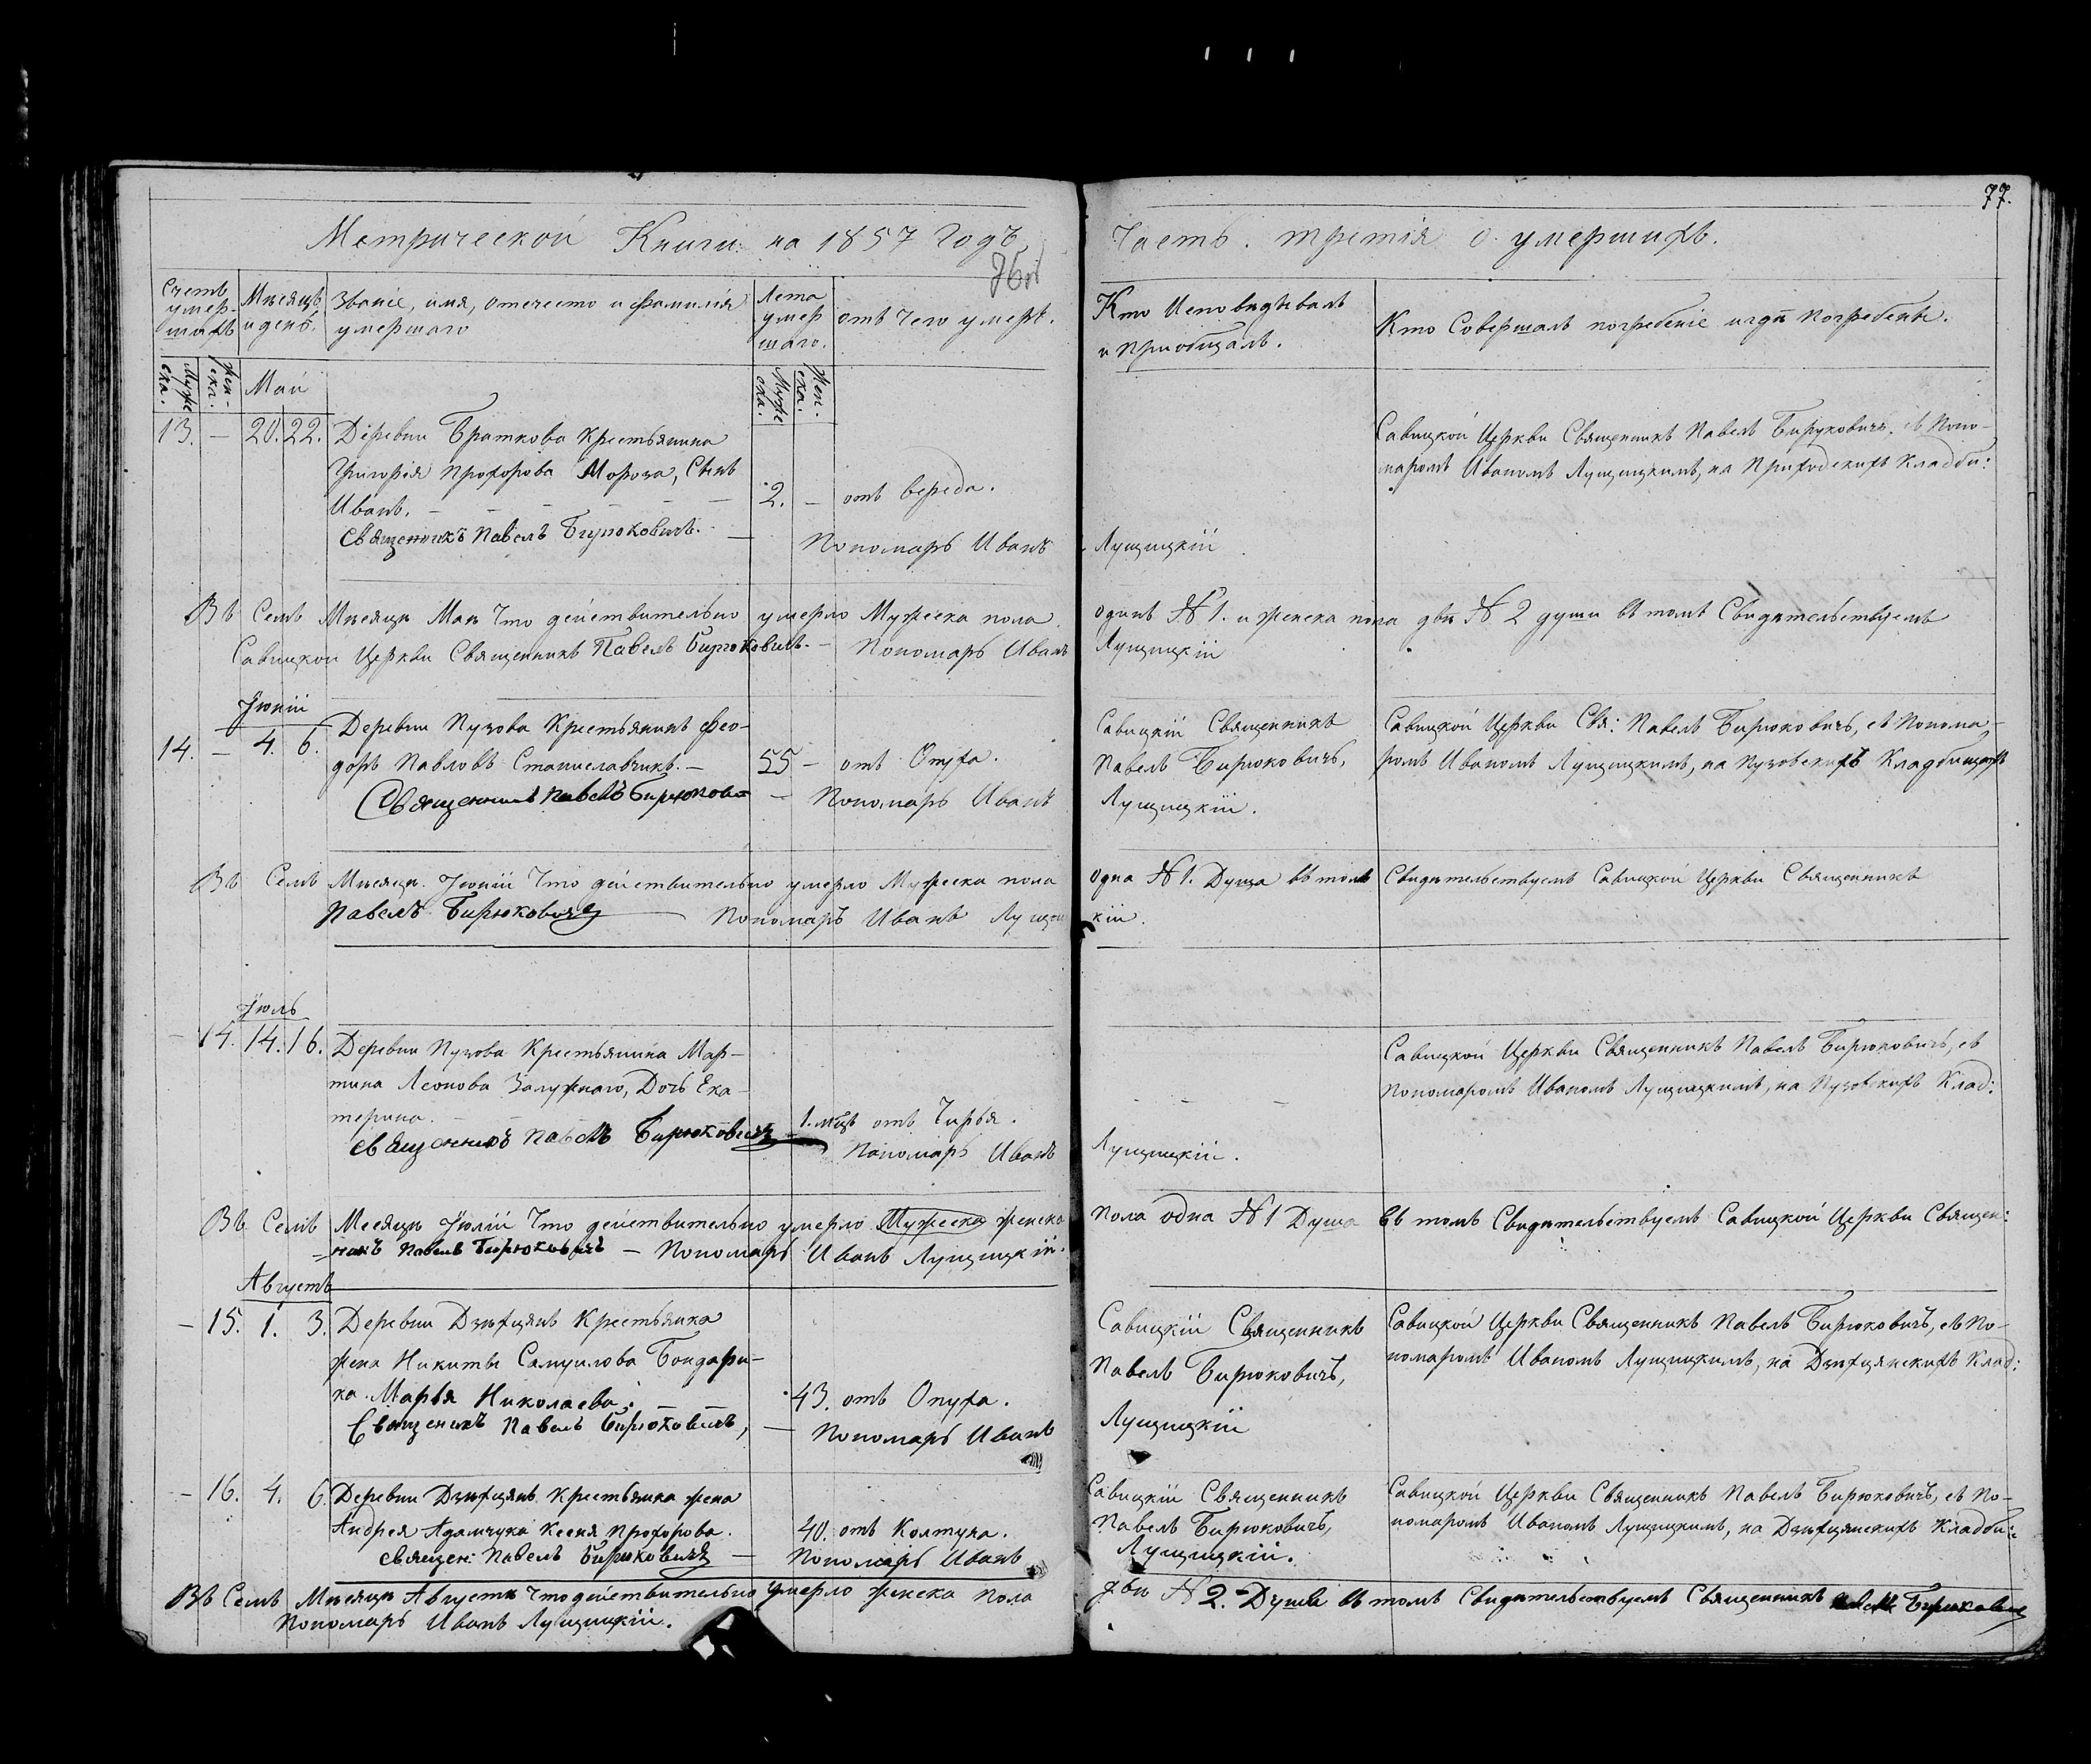 77.
Метрической Книги на 1857 Годъ,
Часть третія о умершихъ.
76об
Счетъ умер-шихъ
Мѣсяцъ и день.
Званіе, имя, отечество и фамилія умершаго
Лета умер шаго.
отъ чего умеръ.
Кто Исповѣдывалъ и Приобщалъ.
Кто Совершалъ погребеніе и гдѣ погребенъ.
Муже ска.
Жен-ска.
Май
Муже ска.
Жен-ска.
13. — 20. 22. Деревни Браткова Крестьянина
Григорія Прохорова Мороза, Сынъ
Иванъ. — — — — 2. — отъ вереда.
Священникъ Павелъ Бирюковичъ. — Пономарь Иванъ Лущицкій
Савицкой Церкви Священникъ Павелъ Бирюковичъ, съ Поно-
маромъ Иваномъ Лущицкимъ, на Приходскихъ Кладби:
Въ Семъ Мѣсяцѣ Маѣ Что действительно умерло Мужеска пола одинъ № 1. и женска пола двѣ № 2 души въ томъ Свидѣтельствуемъ
Савицкой Церкви Священникъ Павелъ Бирюковичъ. — Пономарь Иванъ Лущицкій
Іюній
14. — 4. 6. Деревни Пузова Крестьянинъ Фео-
доръ Павловъ Станиславчикъ. — 55 — отъ Опуха.
Священникъ Павелъ Бирюкови — Пономарь Иванъ Лущицкій.
Савицкій Священникъ
Павелъ Бирюковичъ,
Савицкой Церкви Свя: Павелъ Бирюковичъ, съ Понома-
ромъ Иваномъ Лущицкимъ, на Пузовскихъ Кладбищахъ
Въ Семъ Мѣсяцѣ Іюній Что действительно умерло Мужеска пола одна № 1. Душа въ томъ Свидѣтельствуемъ Савицкой Церкви Священникъ
Павелъ Бирюковичъ — Пономарь Иванъ Лущицкій.
Іюль
— 14. 14. 16. Деревни Пузова Крестьянина Мар-
тина Леонова Залужнаго, Дочь Ека-
терина. — — — 1. мѣцъ отъ Чирья.
Священникъ Павелъ Бирюковичъ — Пономарь Иванъ Лущицкій.
— — —
Савицкой Церкви Священникъ Павелъ Бирюковичъ, съ
Пономаромъ Иваномъ Лущицкимъ, на Пузовскихъ Клад:
Въ Семъ Месяцѣ Іюлій Что действительно умерло Мужеска женска пола одна № 1 Душа въ томъ Свидѣтельствуемъ Савицкой Церкви Священ:
никъ Павелъ Бирюковичъ — Пономарь Иванъ Лущицкій.
Августъ
— 15. 1. 3. Деревни Дзѣхцянъ Крестьянка
жена Никиты Самуилова Бондари-
ка Марья Николаева. — — 43. отъ Опуха.
Священникъ Павелъ Бирюковичъ, — Пономарь Иванъ Лущицкій
Савицкій Священникъ
Павелъ Бирюковичъ,
Савицкой Церкви Священникъ Павелъ Бирюковичъ, съ По-
номаромъ Иваномъ Лущицкимъ, на Дзѣхцянскихъ Клад:
— 16. 4. 6. Деревни Дзѣхцянъ Крестьянка жена
Андрея Адамчука Ксенія Прохорова. 40. отъ Колтуна.
Священ: Павелъ Бирюковичъ — Пономарь Иванъ Лущицкій.
Савицкій Священникъ
Павелъ Бирюковичъ,
Савицкой Церкви Священникъ Павелъ Бирюковичъ, съ По-
номаромъ Иваномъ Лущицкимъ, на Дзѣхцянскихъ Кладби:
Въ Семъ Мѣсяцѣ Августѣ Что действительно умерло женска пола двѣ № 2. Души въ томъ Свидѣтельствуемъ Священникъ Павелъ Бирюкович
Пономарь Иванъ Лущицкій.